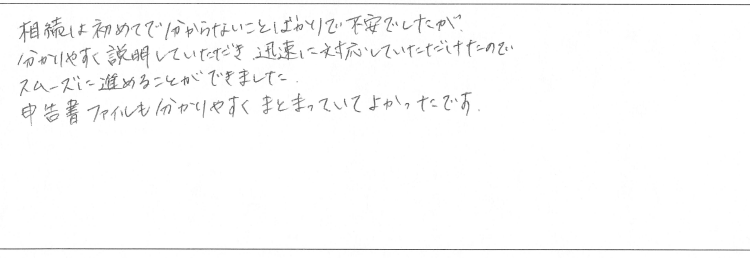 相続は初めてで分からないことばかりで不安でしたが、
分かりやすく説明していただき 迅速に対応していただけたので
スムーズに進めることができました。
申告書ファイルも分かりやすくまとまっていてよかったです。